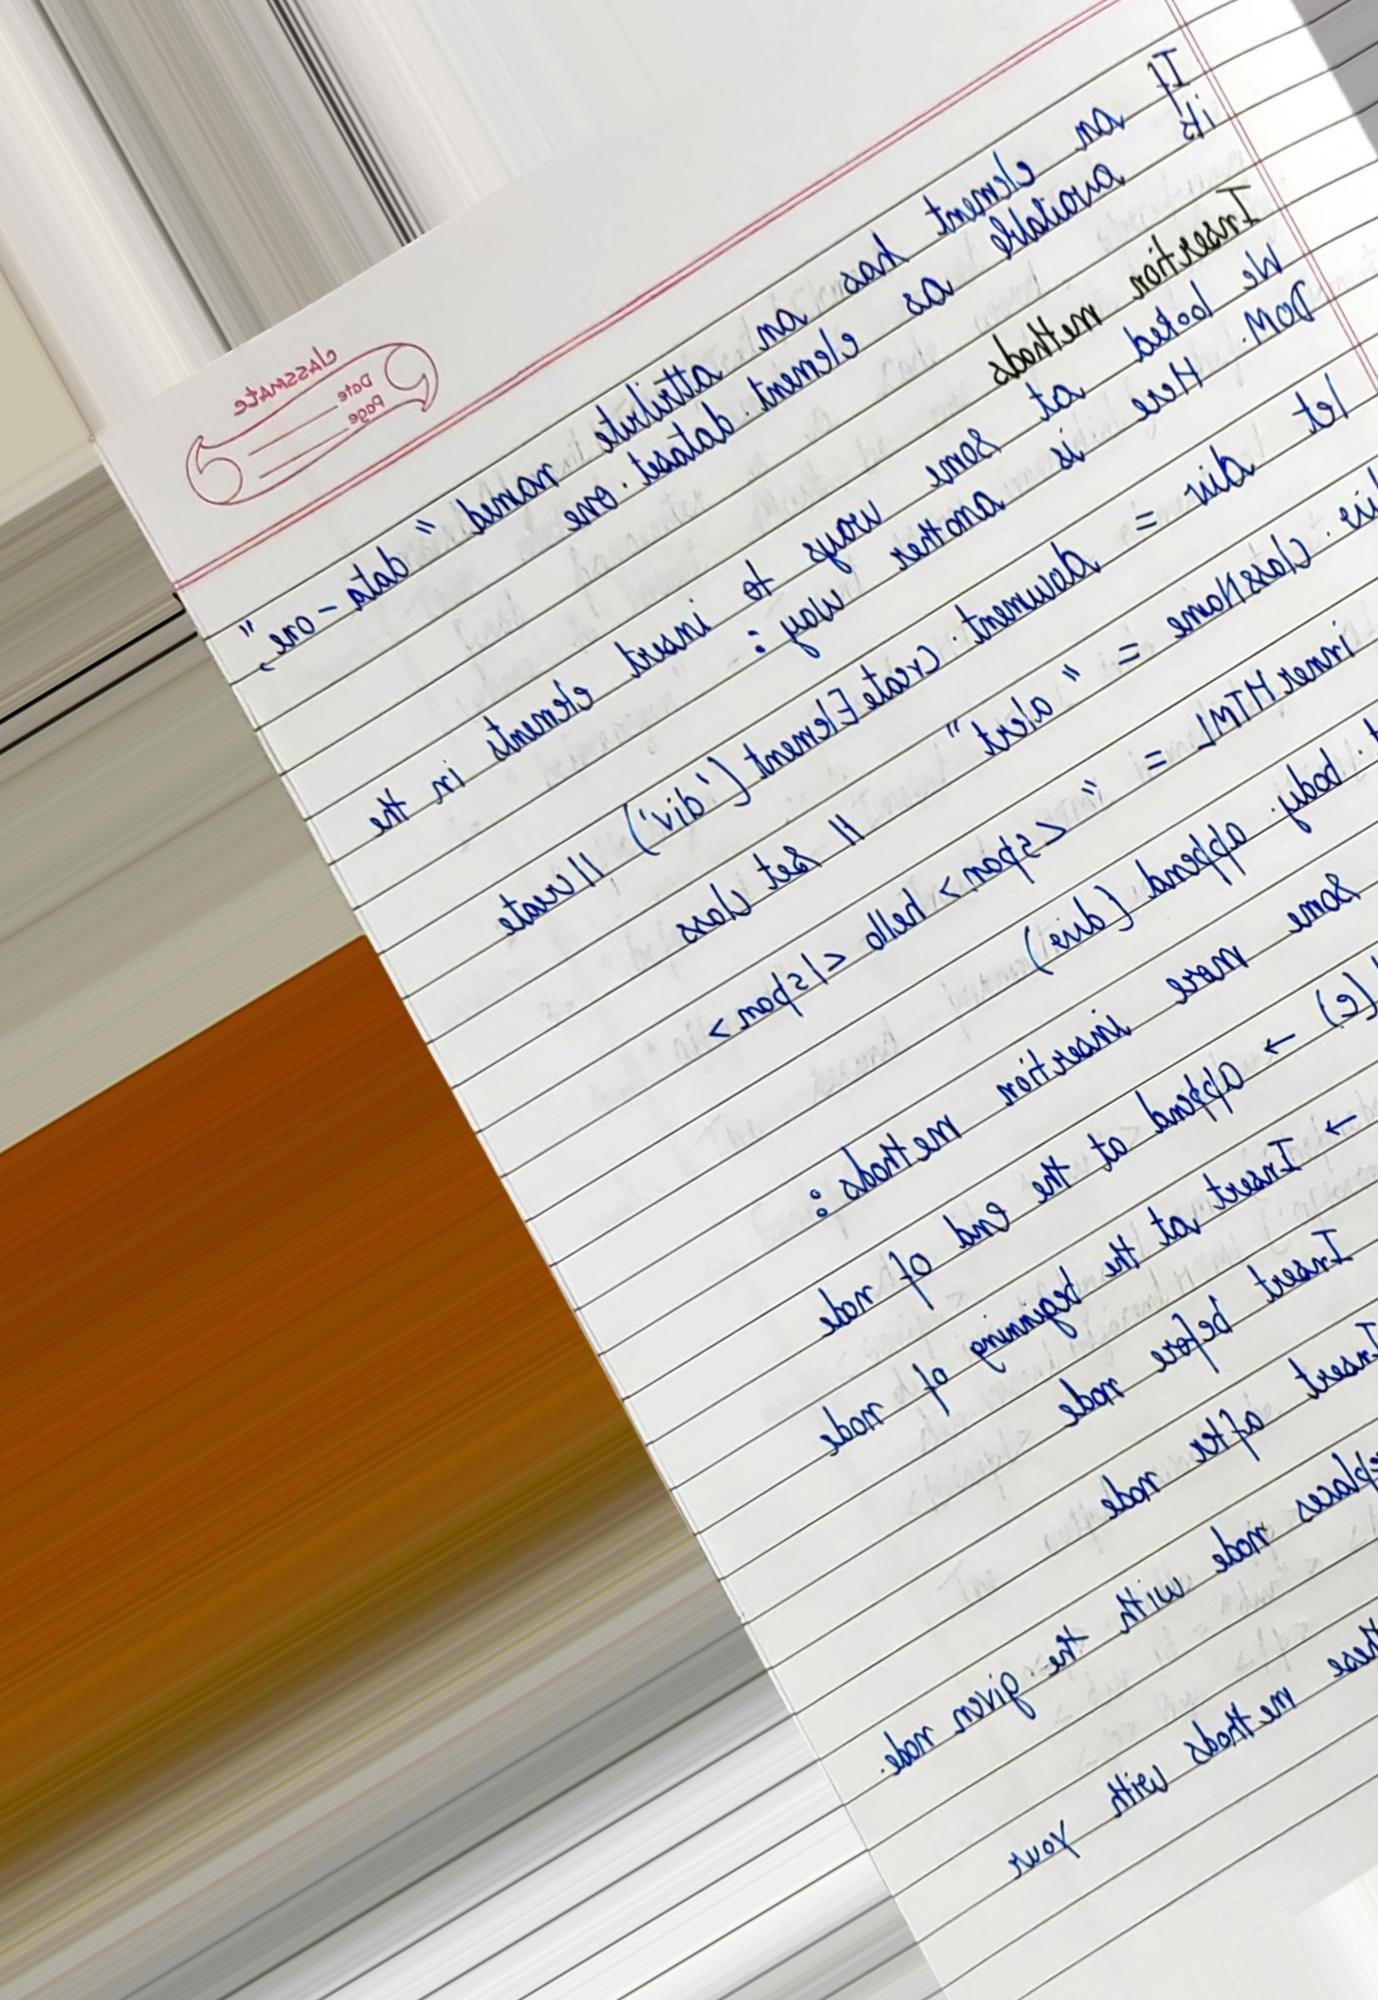 classmate
Date
Page
If an element has an attribute named "data-one",
its avaitable as element.dataset.one
Insertion methods
We looked at some ways to insert elements in the
DOM. Here is another way:
let div = document.createElement('div') // create
.className = "alert" // set class
innerHTML = "<span> hello </span>
.body.append(div)
Some more insertion methods:
(e) → append at the end of node
→ Insert at the beginning of node
Insert before node
Insert after node
node with the given node.
these methods with Your